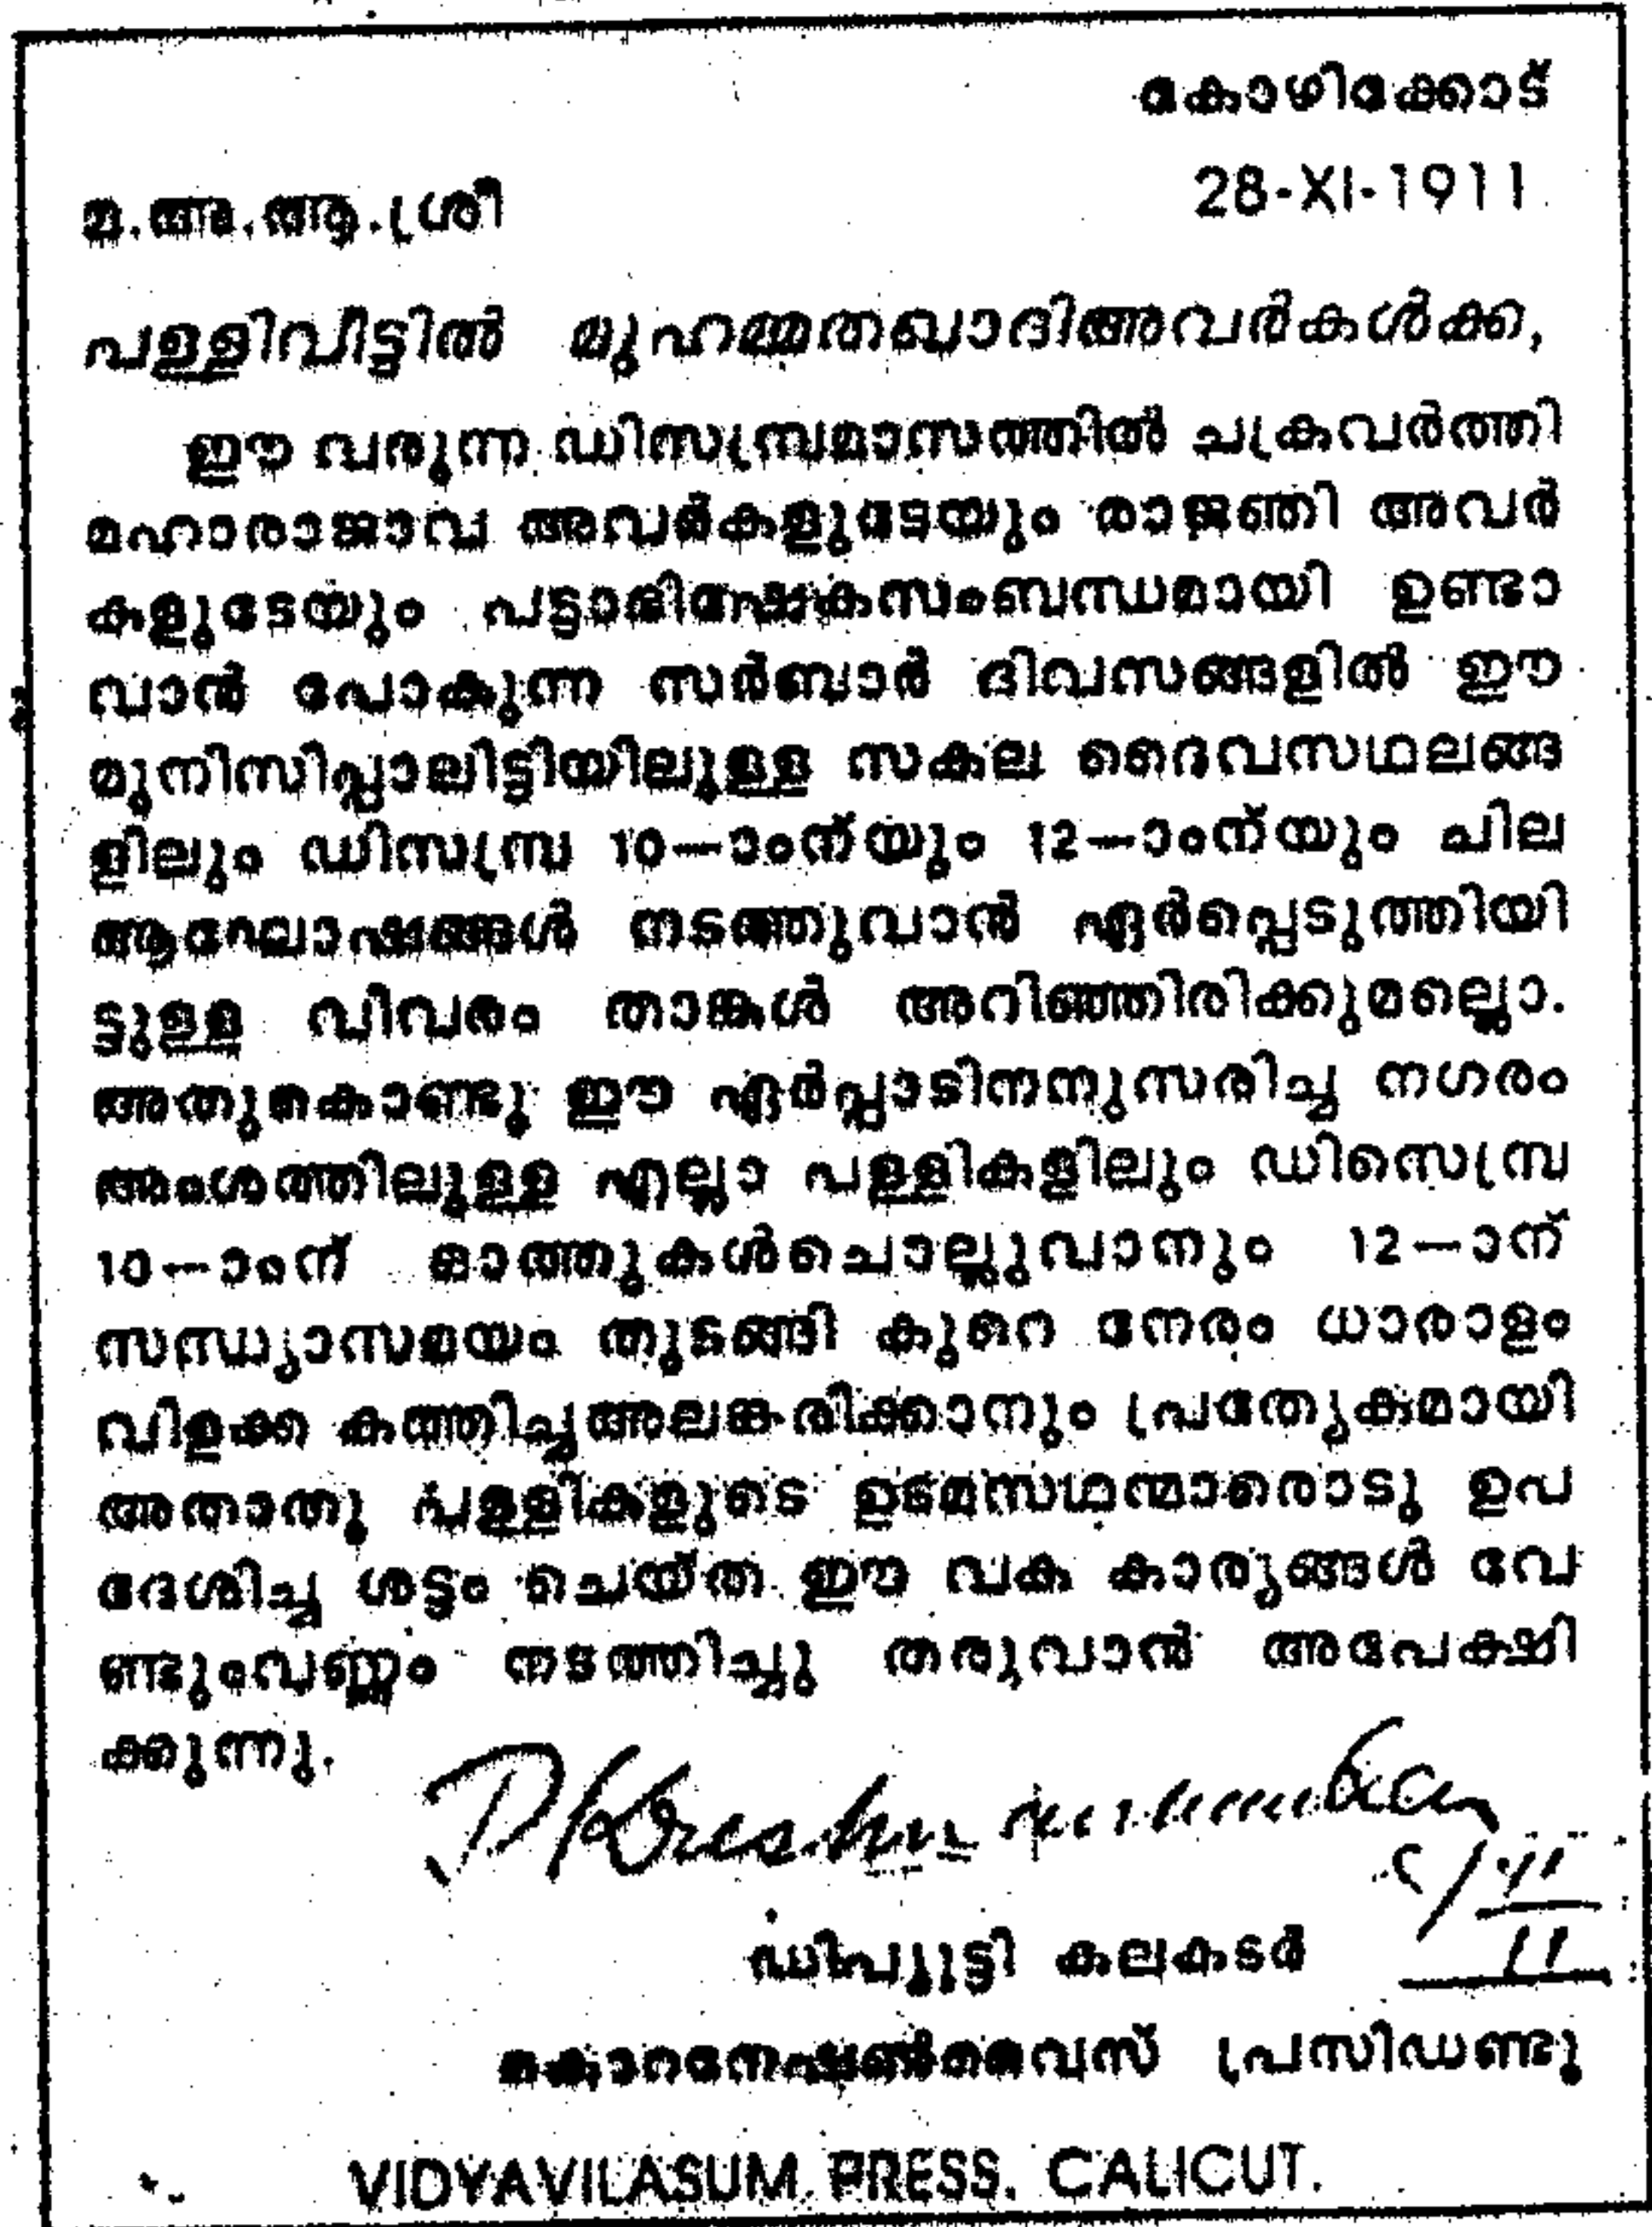 കോഴിക്കോട്
28-XI-1911
മ.അ.ആ.ശ്രീ
പള്ളിവീട്ടിൽ മുഹമ്മതഖാദിഅവർകൾക്ക,
ഈ വരുന്ന ഡിസമ്പ്രമാസത്തിൽ ചക്രവർത്തി
മഹാരാജാവ അവർകളുടേയും രാജ്ഞി അവർ
കളുടേയും പട്ടാഭിഷേകസംബന്ധമായി ഉണ്ടാ
വാൻ പോകുന്ന സർബാർ ദിവസങ്ങളിൽ ഈ
മുനിസിപ്പാലിട്ടിയിലുള്ള സകല ദൈവസ്ഥലങ്ങ
ളിലും ഡിസമ്പ്ര 10-ാംന്‌യും 12-ാംന്‌യും ചില
ആഘോഷങ്ങൾ നടത്തുവാൻ ഏർപ്പെടുത്തിയി
ട്ടുള്ള വിവരം താങ്കൾ അറിഞ്ഞിരിക്കുമല്ലൊ.
അതുകൊണ്ടു ഈ ഏർപ്പാടിനനുസരിച്ച നഗരം
അംശത്തിലുള്ള എല്ലാ പള്ളികളിലും ഡിസെമ്പ്ര
10-ാംന് ഓത്തുകൾചൊല്ലുവാനും 12-ാന്
സന്ധ്യാസമയം തുടങ്ങി കുറെ നേരം ധാരാളം
വിളക്ക കത്തിച്ചഅലങ്കരിക്കാനും പ്രത്യേകമായി
അതാതു പള്ളികളുടെ ഉടമസ്ഥന്മാരൊടു ഉപ
ദേശിച്ച ശട്ടം ചെയ്ത ഈ വക കാര്യങ്ങൾ വേ
ണ്ടുംവണ്ണം നടത്തിച്ചു തരുവാൻ അപേക്ഷി
ക്കുന്നു.
ഡിപ്യുട്ടി കലകടർ
കൊറനേഷൺവൈസ് പ്രസിഡണ്ടു
VIDYAVILASUM PRESS. CALICUT.